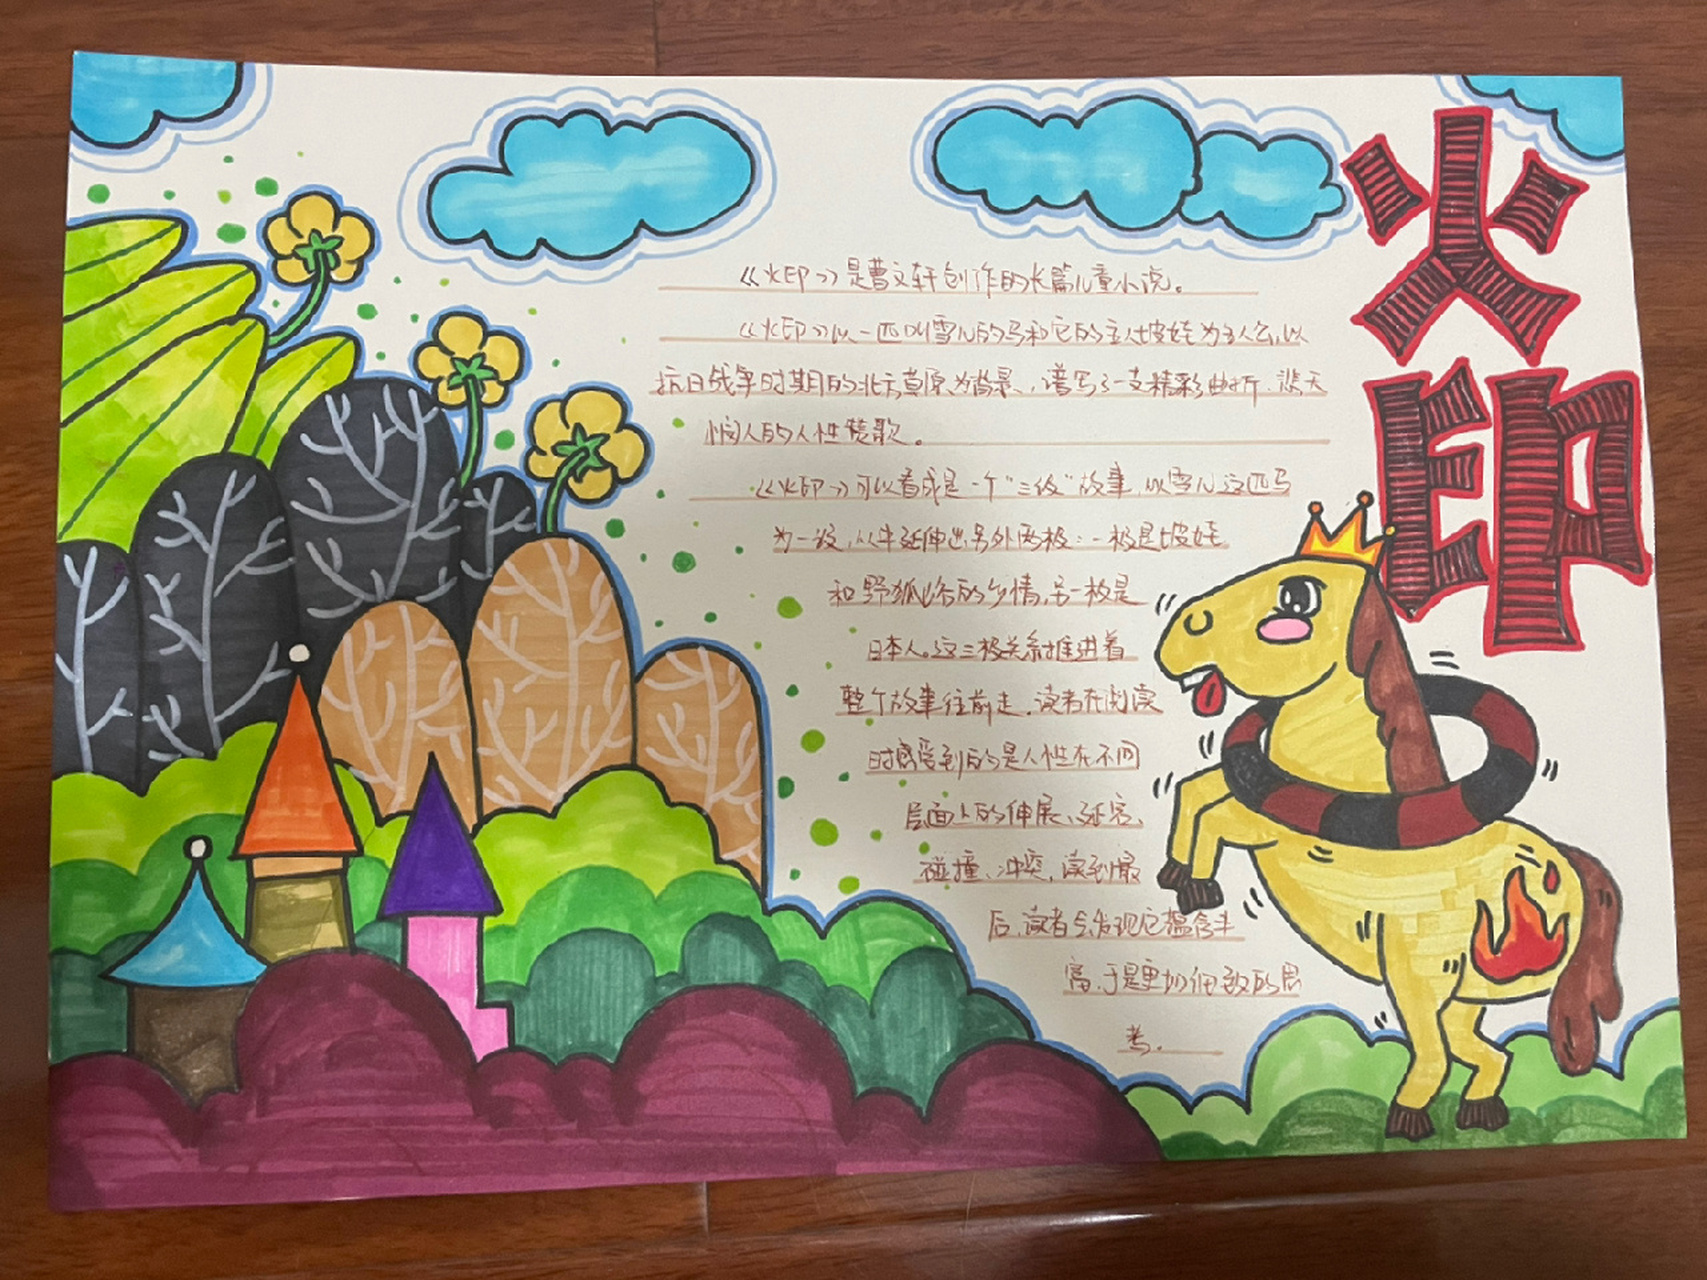 火印
《火印》是曹文轩创作的长篇儿童小说。
《火印》以一匹叫雪儿的马和它的主人坡娃为主人公，以
抗日战争时期的北方草原为背景，谱写了一支精彩曲折、悲天
悯人的人性赞歌。
《火印》可以看成是一个“三级”故事，以雪儿这匹马
为一级，从中延伸出另外两极：一极是坡娃
和野狐峪的乡情，另一极是
日本人。这三极关系推进着
整个故事往前走，读者在阅读
时感受到的是人性在不同
层面上的伸展、延宕、
碰撞、冲突，读到最
后，读者会发现它蕴含丰
富，于是更加细致的思
考。